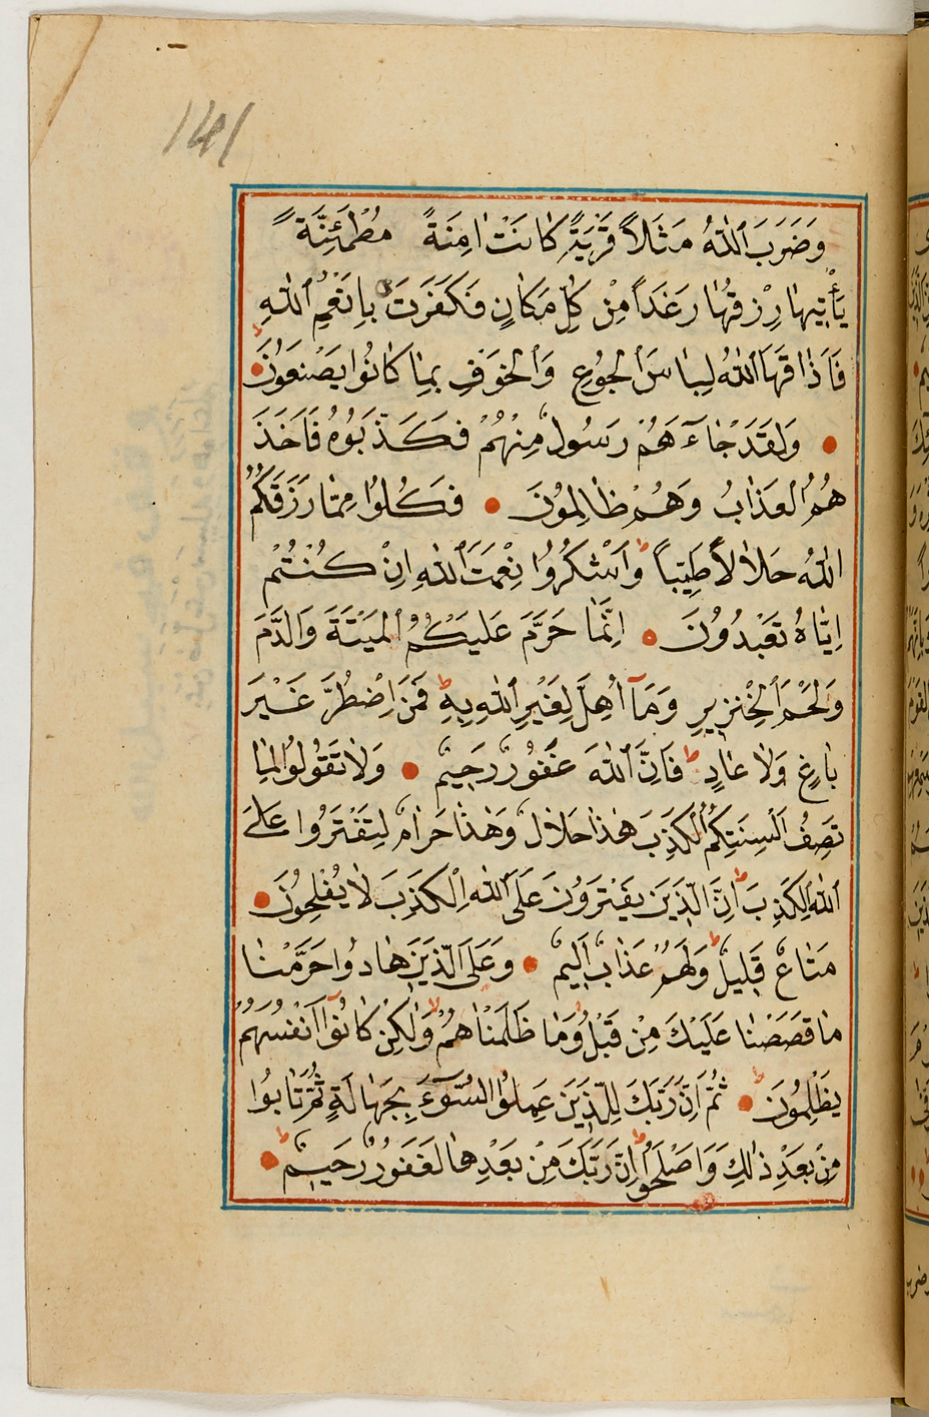 141
وَضَرَبَ اللّٰهُ مَثَلاً قَرْيَةً كَانَتْ اٰمِنَةً مُطْمَئِنَّةً
يَأْتِيهَا رِزْقُهَا رَغَدًا مِنْ كُلِّ مَكَانٍ فَكَفَرَتْ بِاَنْعُمِ اللّٰهِ
فَاَذَاقَهَا اللّٰهُ لِبَاسَ الْجُوعِ وَالْخَوْفِ بِمَا كَانُوا يَصْنَعُونَ
وَلَقَدْ جَاۤءَهُمْ رَسُولٌ مِنْهُمْ فَكَذَّبُوهُ فَاَخَذَ
هُمُ الْعَذَابُ وَهُمْ ظَالِمُونَ فَكُلُوا مِمَّا رَزَقَكُمُ
اللّٰهُ حَلَالًا طَيِّبًا وَاشْكُرُوا نِعْمَتَ اللّٰهِ اِنْ كُنْتُمْ
اِيَّاهُ تَعْبُدُونَ اِنَّمَا حَرَّمَ عَلَيْكُمُ الْمَيْتَةَ وَالدَّمَ
وَلَحْمَ الْخِنْزِيرِ وَمَآ اُهِلَّ لِغَيْرِ اللّٰهِ بِهِ فَمَنِ اضْطُرَّ غَيْرَ
بَاغٍ وَلَا عَادٍ فَاِنَّ اللّٰهَ غَفُورٌ رَحِيمٌ وَلَا تَقُولُوا لِمَا
تَصِفُ اَلْسِنَتُكُمُ الْكَذِبَ هٰذَا حَلَالٌ وَهٰذَا حَرَامٌ لِتَفْتَرُوا عَلَى
اللّٰهِ الْكَذِبَ اِنَّ الَّذِينَ يَفْتَرُونَ عَلَى اللّٰهِ الْكَذِبَ لَا يُفْلِحُونَ
مَتَاعٌ قَلِيلٌ وَلَهُمْ عَذَابٌ اَلِيمٌ وَعَلَى الَّذِينَ هَادُوا حَرَّمْنَا
مَا قَصَصْنَا عَلَيْكَ مِنْ قَبْلُ وَمَا ظَلَمْنَاهُمْ وَلٰكِنْ كَانُوٓا اَنْفُسَهُمْ
يَظْلِمُونَ ثُمَّ اِنَّ رَبَّكَ لِلَّذِينَ عَمِلُوا السُّوٓءَ بِجَهَالَةٍ ثُمَّ تَابُوا
مِنْ بَعْدِ ذٰلِكَ وَاَصْلَحُوا اِنَّ رَبَّكَ مِنْ بَعْدِهَا لَغَفُورٌ رَحِيمٌ